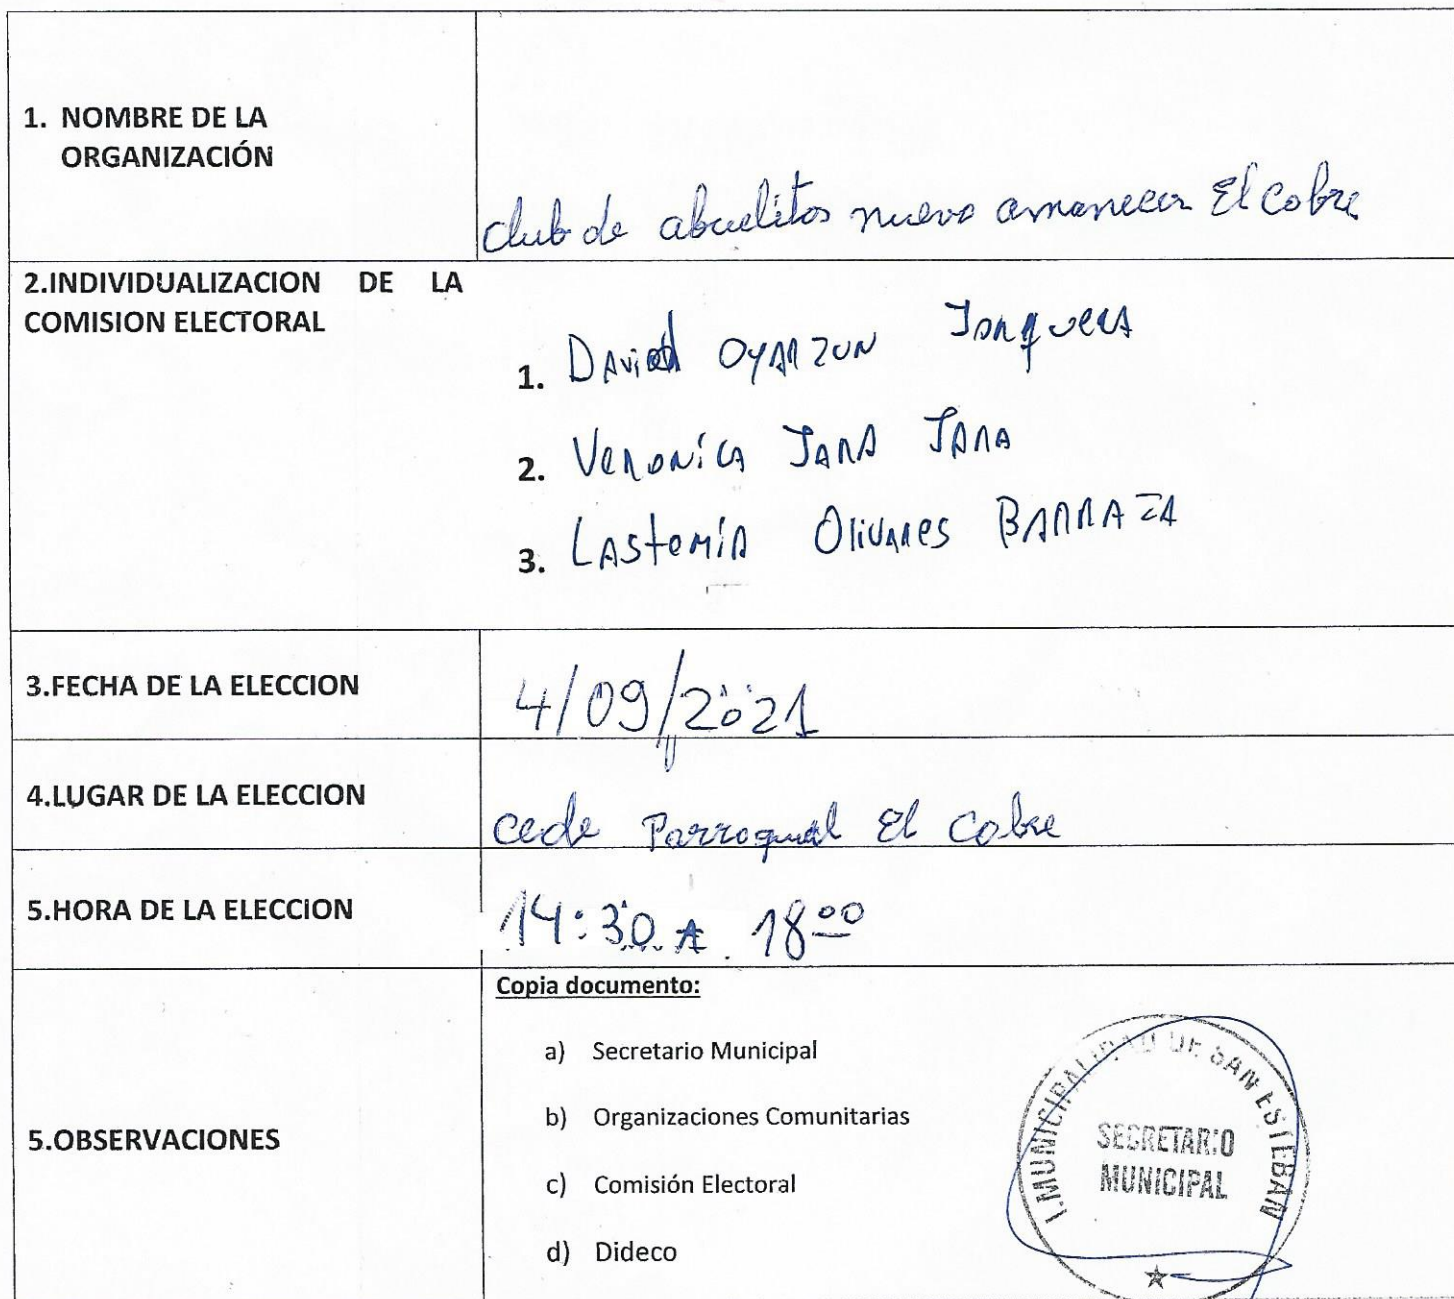 1. NOMBRE DE LA
ORGANIZACIÓN
Club de abuelitos nuevo amanecer El Cobre
2.INDIVIDUALIZACION DE LA
COMISION ELECTORAL
1. David OYARZUN Jorquera
2. Veronica JARA JARA
3. LAStemia Olivares BARRAZA
3.FECHA DE LA ELECCION
4/09/2021
4.LUGAR DE LA ELECCION
cede Parroquial El Cobre
5.HORA DE LA ELECCION
14:30 A 18 00
5.OBSERVACIONES
Copia documento:
a) Secretario Municipal
b) Organizaciones Comunitarias
c) Comisión Electoral
d) Dideco
I.MUNICIPALIDAD DE SAN ESTEBAN
SECRETARIO
MUNICIPAL